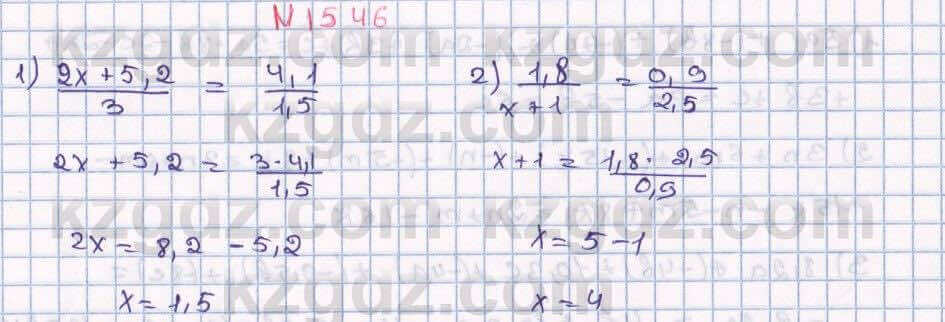 N 1546
1) (2x + 5,2)/3 = 4,1/1,5
2x + 5,2 = (3·4,1)/1,5
2x = 8,2 - 5,2
x = 1,5
2) 1,8/(x+1) = 0,9/2,5
x+1 = (1,8· 2,5)/0,9
x = 5-1
x = 4
kzgdz.com
kzgdz.com
kzgdz.com
kzgdz.com